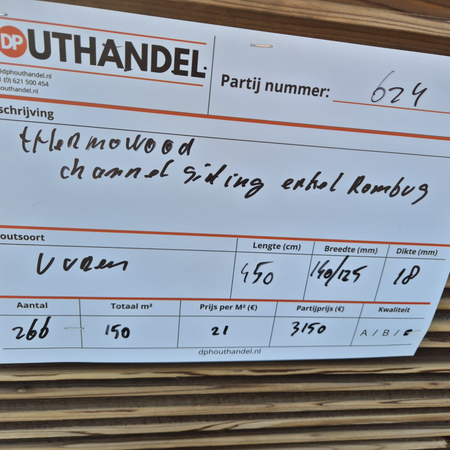 DP HOUTHANDEL.
dphouthandel.nl
(0) 621 500 454
outhandel.nl
Partij nummer: 624
schrijving
tHermowood
channel siding enkel Rombus
outsoort
Vuren
Lengte (cm)
450
Breedte (mm)
140/125
Dikte (mm)
18
Aantal
266
Totaal m²
150
Prijs per M² (€)
21
Partijprijs (€)
3150
Kwaliteit
A / B / C
dphouthandel.nl